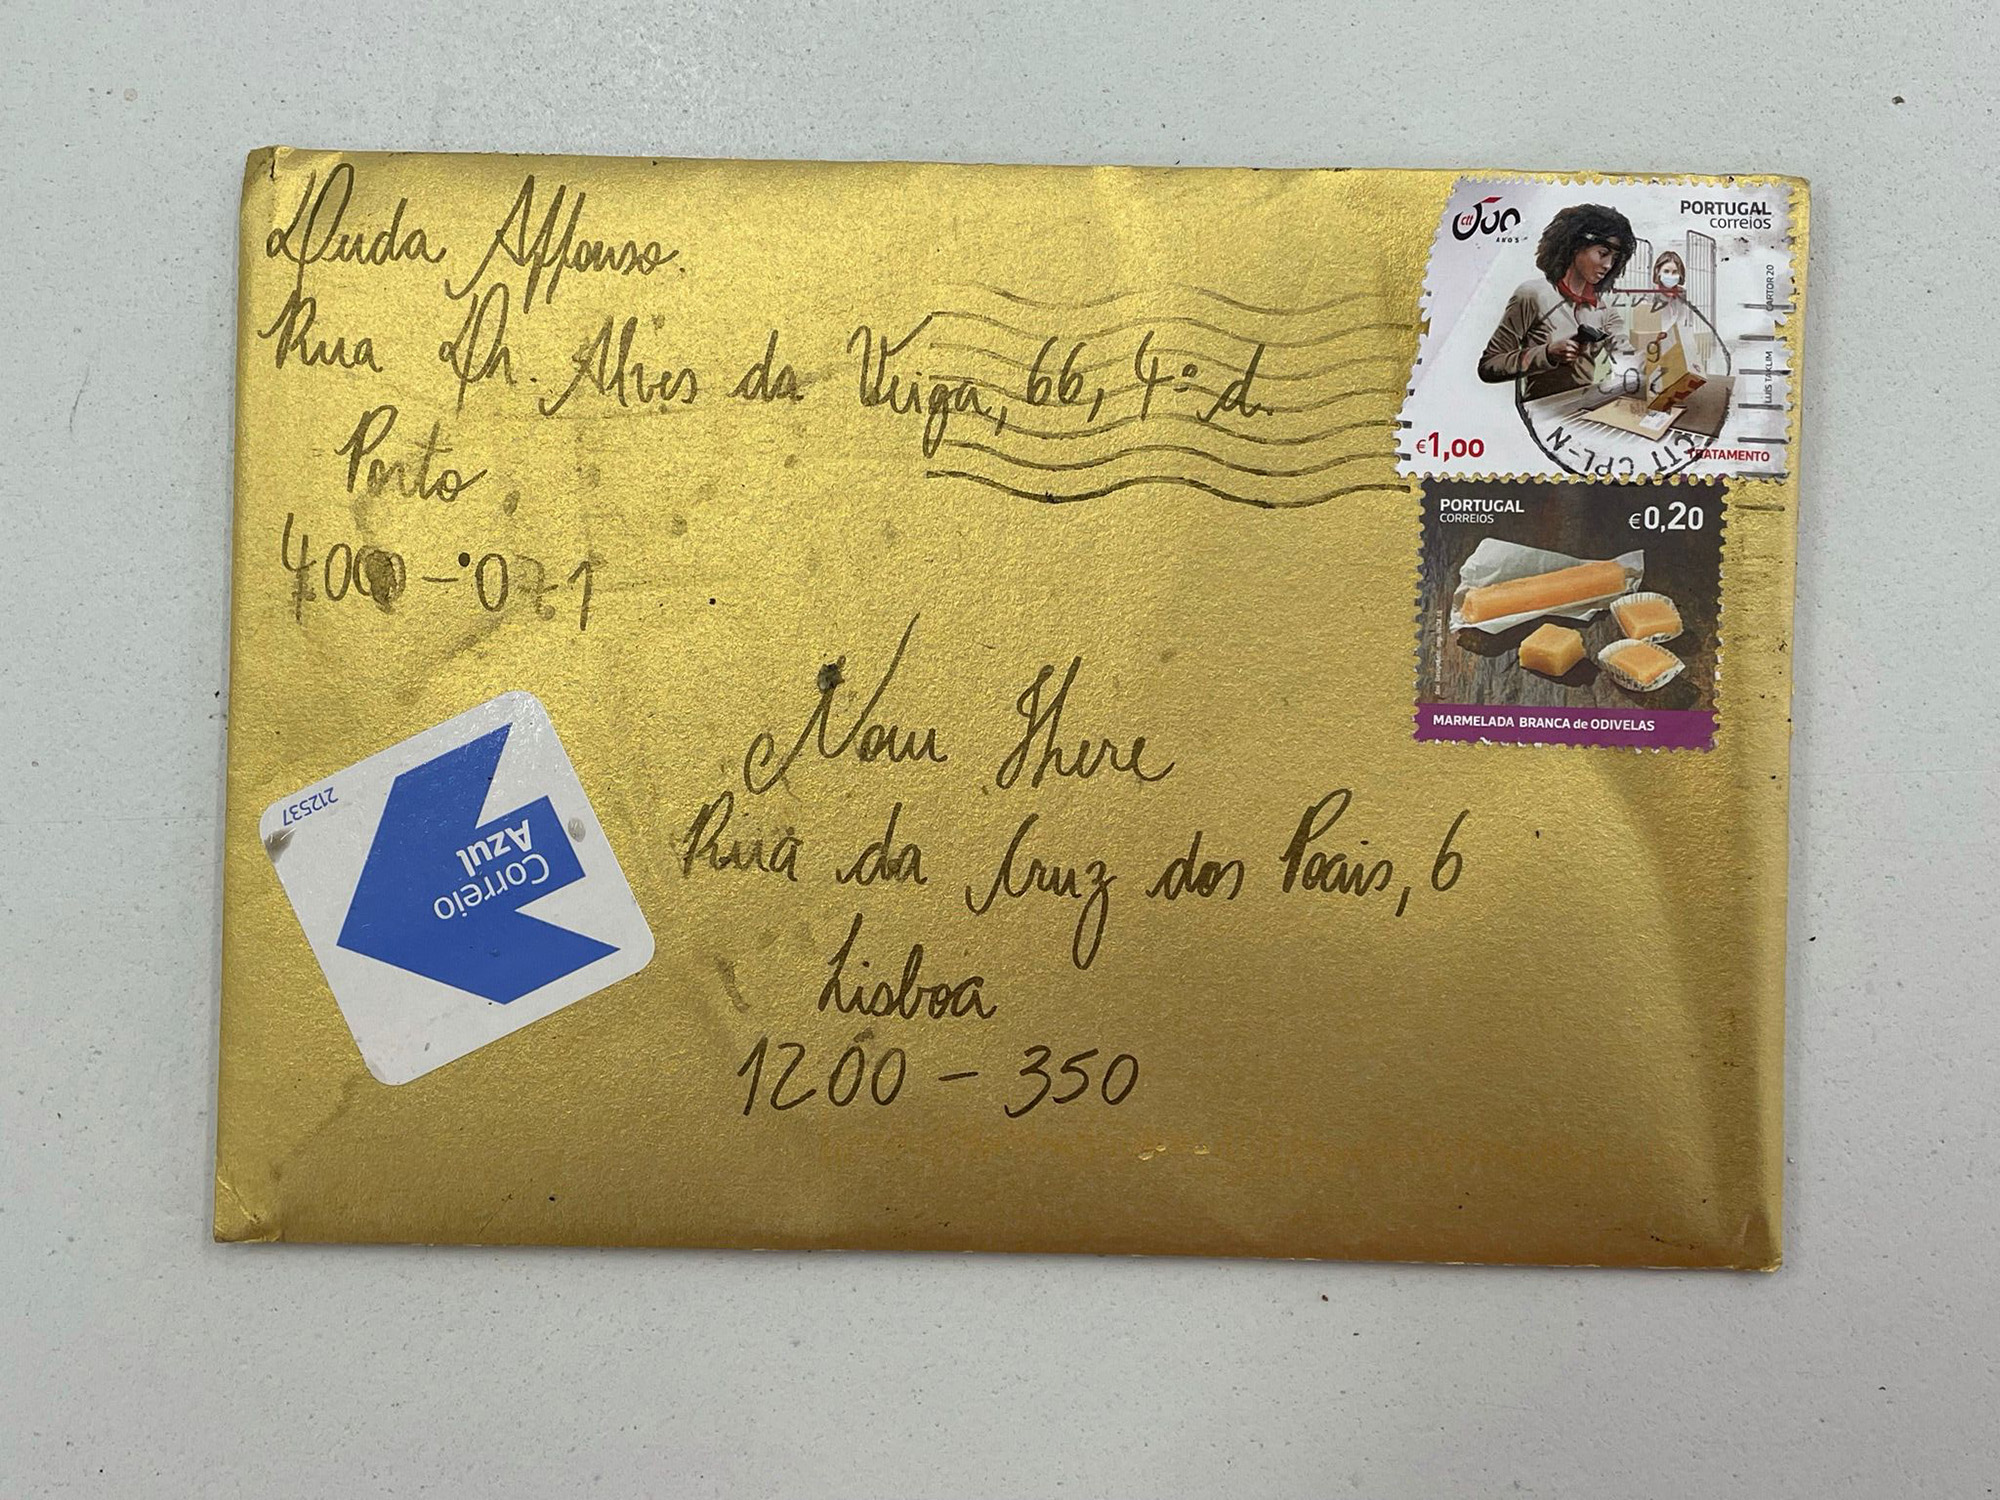 Duda Affonso.
Rua Dr. Alves da Veiga, 66, 4º d.
Porto
4000-071
ctt 500
ANOS
PORTUGAL
correios
CARTOR 20
LUÍS TAKLIM
€1,00
TRATAMENTO
CTT CPL-N
PORTUGAL
CORREIOS
€0,20
MARMELADA BRANCA de ODIVELAS
212537
Correio
Azul
Now Here
Rua da Cruz dos Poais, 6
Lisboa
1200-350